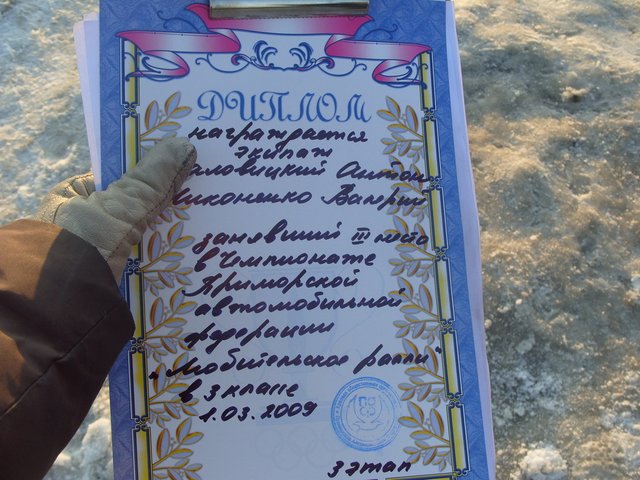 ДИПЛОМ
награждается
экипаж
Антон
Никоненко Валерий
занявший III место
в Чемпионате
Приморской
автомобильной
федерации
"Любительское ралли"
в 3 классе
1.03.2009
3 этап